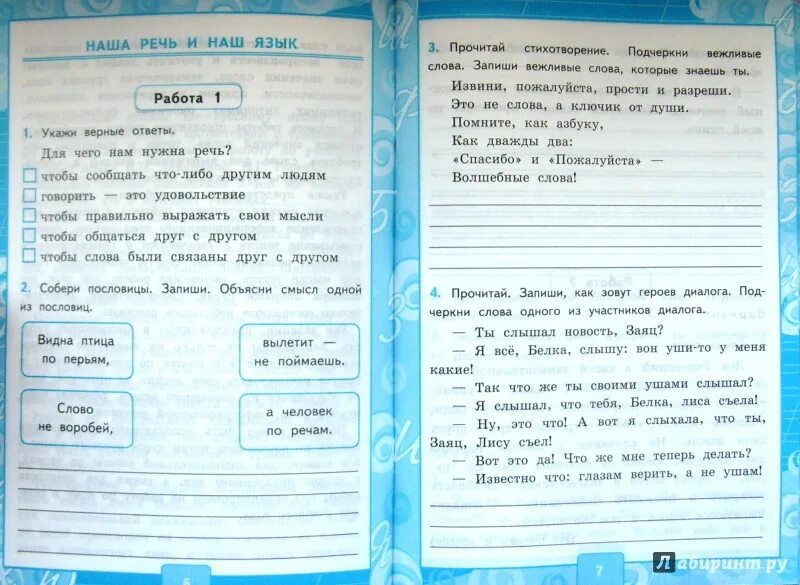 НАША РЕЧЬ И НАШ ЯЗЫК
Работа 1
1. Укажи верные ответы.
Для чего нам нужна речь?
чтобы сообщать что-либо другим людям
говорить — это удовольствие
чтобы правильно выражать свои мысли
чтобы общаться друг с другом
чтобы слова были связаны друг с другом
2. Собери пословицы. Запиши. Объясни смысл одной
из пословиц.
Видна птица
по перьям,
вылетит —
не поймаешь.
Слово
не воробей,
а человек
по речам.
6
3. Прочитай стихотворение. Подчеркни вежливые
слова. Запиши вежливые слова, которые знаешь ты.
Извини, пожалуйста, прости и разреши.
Это не слова, а ключик от души.
Помните, как азбуку,
Как дважды два:
«Спасибо» и «Пожалуйста» —
Волшебные слова!
4. Прочитай. Запиши, как зовут героев диалога. Под-
черкни слова одного из участников диалога.
— Ты слышал новость, Заяц?
— Я всё, Белка, слышу: вон уши-то у меня
какие!
— Так что же ты своими ушами слышал?
— Я слышал, что тебя, Белка, лиса съела!
— Ну, это что! А вот я слыхала, что ты,
Заяц, Лису съел!
— Вот это да! Что же мне теперь делать?
— Известно что: глазам верить, а не ушам!
7
Лабиринт.ру